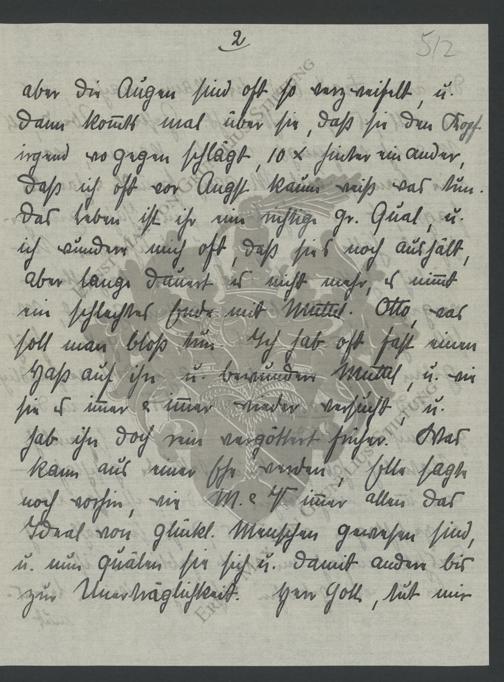 2
512
aber die Augen sind oft so verzweifelt, u.
dann kommts mal über sie, daß sie den Kopf
irgend wo gegen schlägt, 10 x hinter einander,
daß ich oft vor Angst kaum weiß was tun.
Das Leben ist ihr eine richtige gr. Qual, u.
ich wundere mich oft, daß sie's noch aushält,
aber lange dauert es nicht mehr, es nimmt
ein schlechtes Ende mit Muttel. Otto, was
soll man bloß tun. Ich hab oft fast einen
Haß auf ihn u. bewundere Muttel, u. wie
sie es immer & immer wieder versucht, u.
hab ihn doch vergöttert früher. Was
kann aus einer Ehe werden, Elle sagte
noch vorhin, wie M. & V immer allen das
Ideal von glückl. Menschen gewesen sind,
u. nun quälen sie sich u. damit andere bis
zur Unerträglichkeit. Herr Gott, tut mir